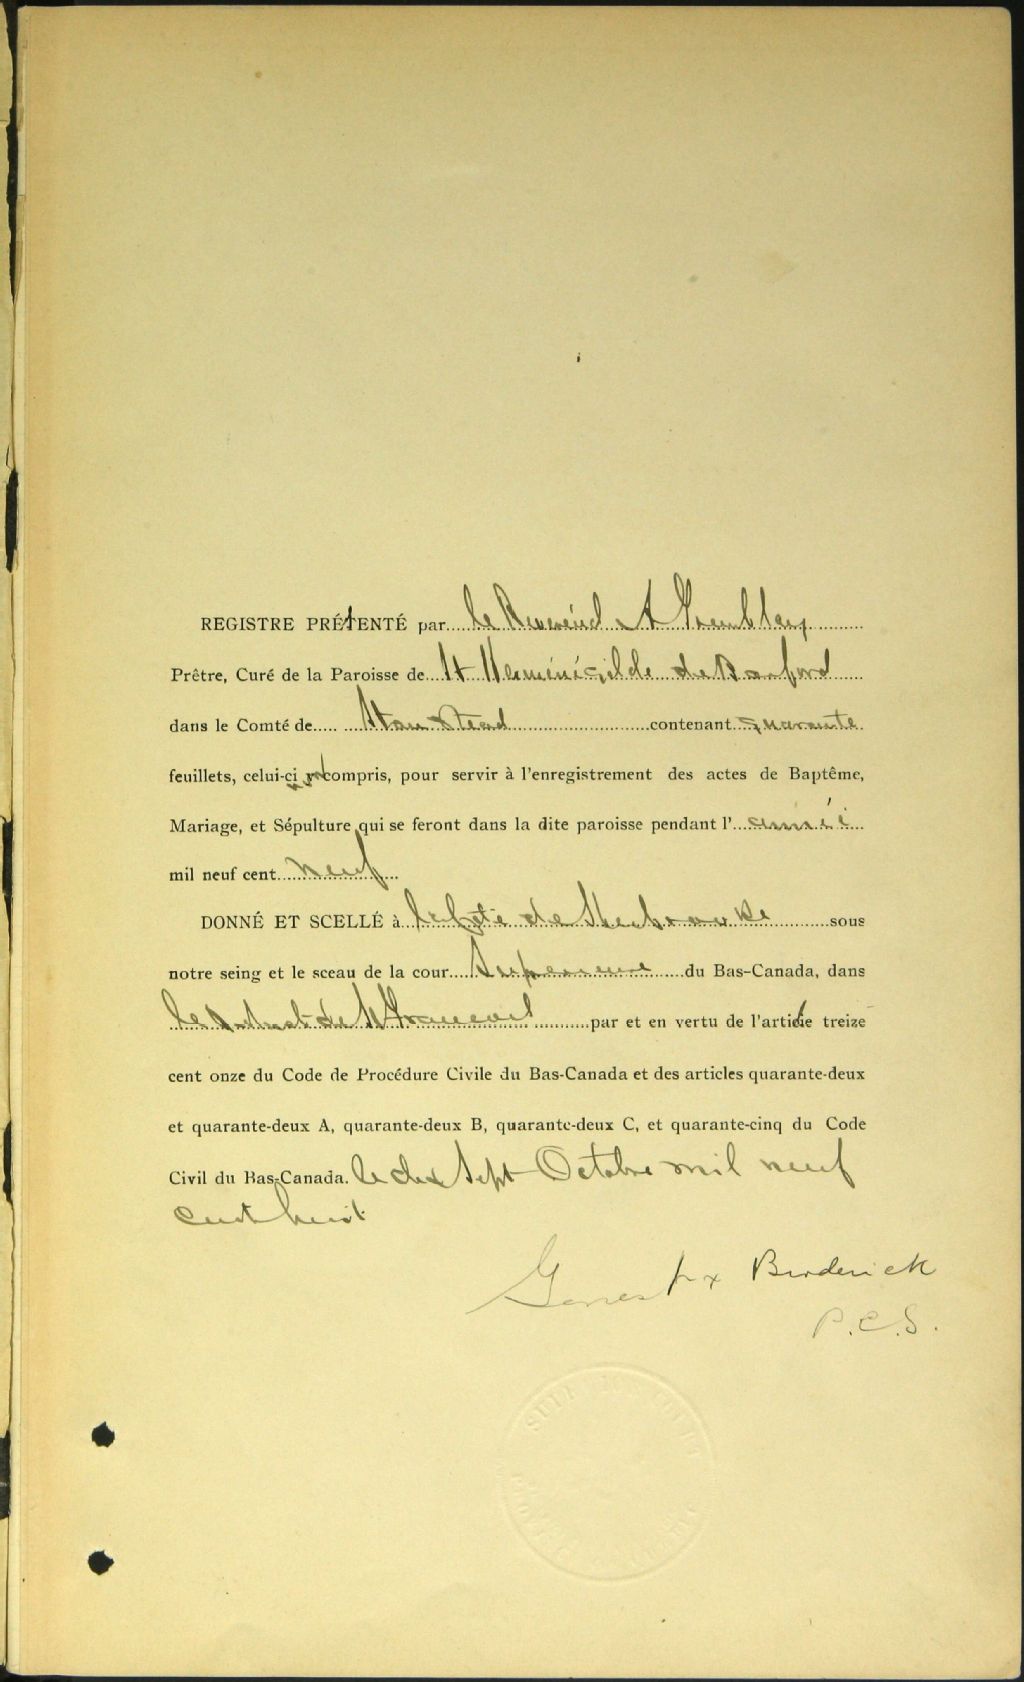 REGISTRE PRÉTENTÉ par le Reverénd A Tremblay
Prêtre, Curé de la Paroisse de St Herménégilde de Barford
dans le Comté de Stanstead contenant quarante
feuillets, celui-ci non compris, pour servir à l'enregistrement des actes de Baptême,
Mariage, et Sépulture qui se feront dans la dite paroisse pendant l' année
mil neuf cent neuf
DONNÉ ET SCELLÉ à la Cité de Sherbrooke sous
notre seing et le sceau de la cour Superieure du Bas-Canada, dans
le District de St Francois par et en vertu de l'article treize
cent onze du Code de Procédure Civile du Bas-Canada et des articles quarante-deux
et quarante-deux A, quarante-deux B, quarante-deux C, et quarante-cinq du Code
Civil du Bas-Canada. le dix Sept Octobre mil neuf
cent huit
Broderick
P.C.S.
SUPERIOR COURT